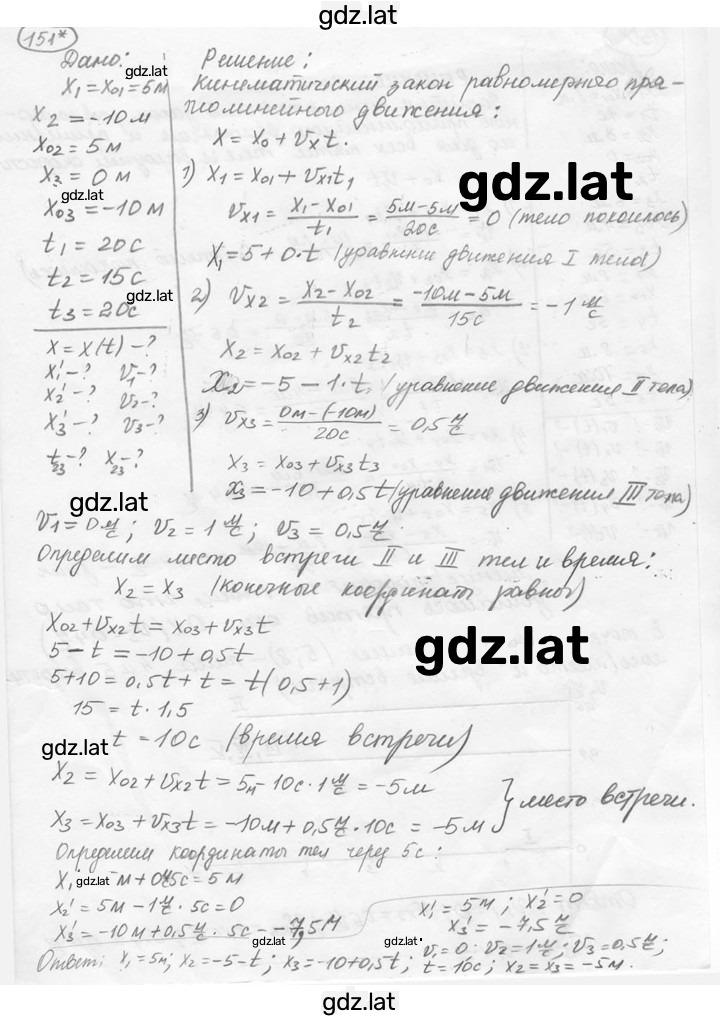 gdz.lat
151*
Дано:
x₁ = x₀₁ = 5м
x₂ = -10м
x₀₂ = 5м
x₃ = 0м
gdz.lat
x₀₃ = -10м
t₁ = 20с
t₂ = 15с
gdz.lat
t₃ = 20с
x = x(t) - ?
x₁' - ? v₁ - ?
x₂' - ? v₂ - ?
x₃' - ? v₃ - ?
t₂₃ - ? x₂₃ - ?
gdz.lat
Решение:
Кинематический закон равномерного пря-
молинейного движения:
x = x₀ + vₓt.
gdz.lat
1) x₁ = x₀₁ + vₓ₁t₁
vₓ₁ = (x₁ - x₀₁)/t₁ = (5м - 5м)/20с = 0 (тело покоилось)
x₁ = 5 + 0·t (уравнение движения I тела)
2) vₓ₂ = (x₂ - x₀₂)/t₂ = (-10м - 5м)/15с = -1 м/с
x₂ = x₀₂ + vₓ₂t₂
x₂ = -5 - 1·t, (уравнение движения II тела)
3) vₓ₃ = (0м - (-10м))/20с = 0,5 м/с
x₃ = x₀₃ + vₓ₃t₃
x₃ = -10 + 0,5t (уравнение движения III тела)
v₁ = 0 м/с; v₂ = 1 м/с; v₃ = 0,5 м/с
Определим место встречи II и III тел и время:
x₂ = x₃ (конечные координаты равны)
x₀₂ + vₓ₂t = x₀₃ + vₓ₃t
5 - t = -10 + 0,5t
gdz.lat
5 + 10 = 0,5t + t = t(0,5 + 1)
15 = t · 1,5
t = 10с (время встречи)
gdz.lat
x₂ = x₀₂ + vₓ₂t = 5м - 10с · 1 м/с = -5м
x₃ = x₀₃ + vₓ₃t = -10м + 0,5 м/с · 10с = -5м
} место встречи.
Определим координаты тел через 5с:
x₁ gdz.lat м + 0 5с = 5м
x₂' = 5м - 1 м/с · 5с = 0
x₃' = -10м + 0,5 м/с · 5с = -7,5м
x₁' = 5м; x₂' = 0
x₃' = -7,5 м/с
gdz.lat
gdz.lat
v₁ = 0; v₂ = 1 м/с; v₃ = 0,5 м/с;
Ответ: x₁ = 5м; x₂ = -5 - t; x₃ = -10 + 0,5t; t = 10с; x₂ = x₃ = -5м.
gdz.lat